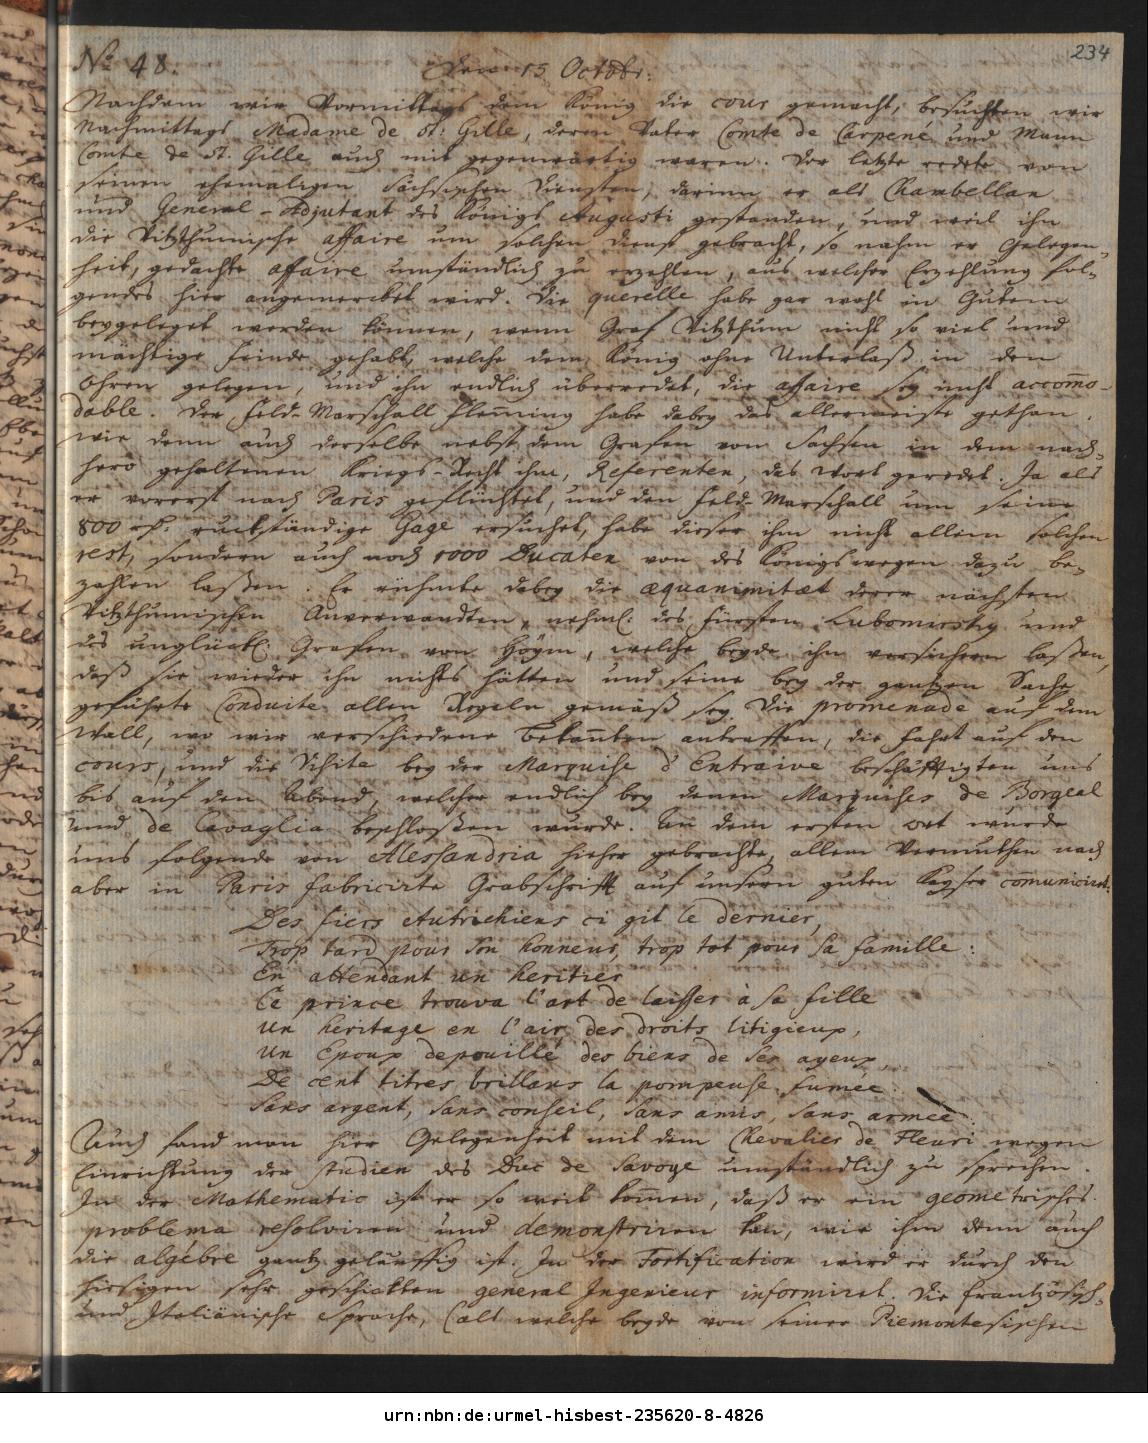 234
No 48.
Den 15 Octobr:
Nachdem wir Vormittags dem König die cour gemacht, besuchten wir
Nachmittags Madame de St: Gille, deren Vater Comte de Carpene und Mann
Comte de St. Gille auch mit gegenwärtig waren. Der letzte redete von
seinen ehemaligen Sächsischen Diensten, darinn er als Chambellan
und General-Adjutant des Königs Augusti gestanden, und weil ihn
die Vitzthumische affaire um solchen Dienst gebracht, so nahm er Gelegen-
heit, gedachte affaire umständlich zu erzehlen, aus welcher Erzehlung fol-
gendes hier angemercket wird. Die querelle habe gar wohl in Gutem
beygeleget werden können, wenn Graf Vitzthum nicht so viel und
mächtige Feinde gehabt, welche dem König ohne Unterlaß in den
Ohren gelegen, und ihn endlich überredet, die affaire sey nicht accom̄o-
dable. Der Feld-Marschall Flem̄ing habe dabey das allermeiste gethan.
wie denn auch derselbe nebst dem Grafen von Sachsen in dem nach-
hero gehaltenen Kriegs-Recht ihm, Referenten, das Wort geredet. Ja als
er vorerst nach Paris geflüchtet, und den Feld-Marschall um seine
800 rh. rückständige Gage ersuchet, habe dieser ihm nicht allein solchen
rest, sondern auch noch 1000 Ducaten von des Königs wegen dazu be-
zahlen laßen. Er rühmte dabey die æquanimitæt derer nächsten
Vitzthumischen Anverwandten, nehml: des Fürsten Lubomirsky und
des unglückl: Grafen von Hoÿm, welche beyde ihn versichern laßen,
daß sie wieder ihn nichts hätten und seine bey der gantzen Sache
geführte Conduite allen Regeln gemäß sey. Die promenade auf dem
Wall, wo wir verschiedene Bekan̄ten antraffen, die Fahrt auf den
cours, und die Visite bey der Marquise d'Entraive beschäfftigten uns
bis auf den Abend, welcher endlich bey denen Marquises de Borgeal
und de Cavaglia beschloßen wurde. An dem ersten Ort wurde
uns folgende von Alessandria hieher gebrachte, allem Vermuthen nach
aber in Paris fabricirte Grabschrifft auf unsern guten Kayser com̄uniciret:
Des fiers Autrichiens ci git le dernier,
Trop tard pour son honneur, trop tot pour sa famille:
En attendant un heritier
Ce prince trouva l'art de laisser à sa fille
Un heritage en l'air, des droits litigieux,
Un Epoux depouillé des biens de ses ayeux,
De cent titres brillans la pompeuse fumée:
Sans argent, sans conseil, sans amis, sans armée.
Auch fand man hier Gelegenheit mit dem Chevalier de Fleuri wegen
Einrichtung der Studien des Duc de Savoye umständlich zu sprechen.
In der Mathematic ist er so weit kom̄en, daß er ein geometrisches
problema resolviren und demonstriren kan, wie ihm denn auch
die algebre gantz geläuffig ist. In der Fortification wird er durch den
hiesigen sehr geschickten general Ingenieur informiret. Die Frantzösisch-
und Italiänische Sprache, (alt welche beyde von seiner Piemontesischen